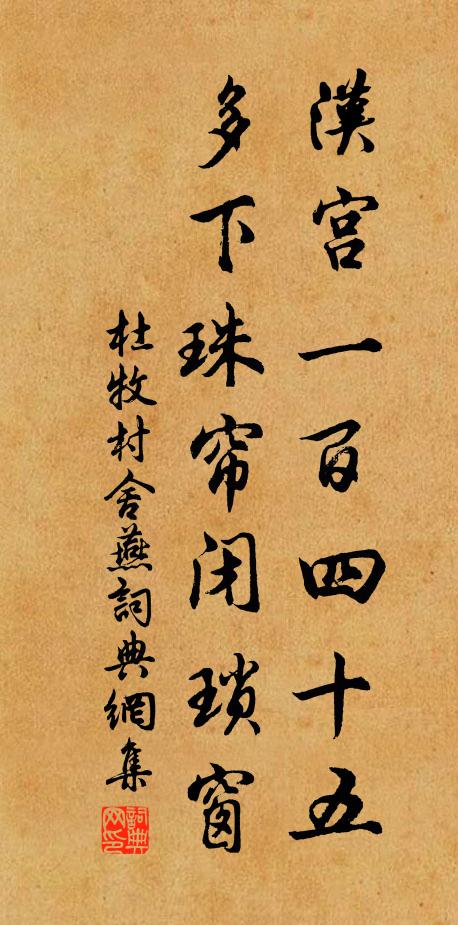 漢宫一百四十五
多下珠帘闭瑣窗
杜牧村舍燕詞典網集
詞典网印